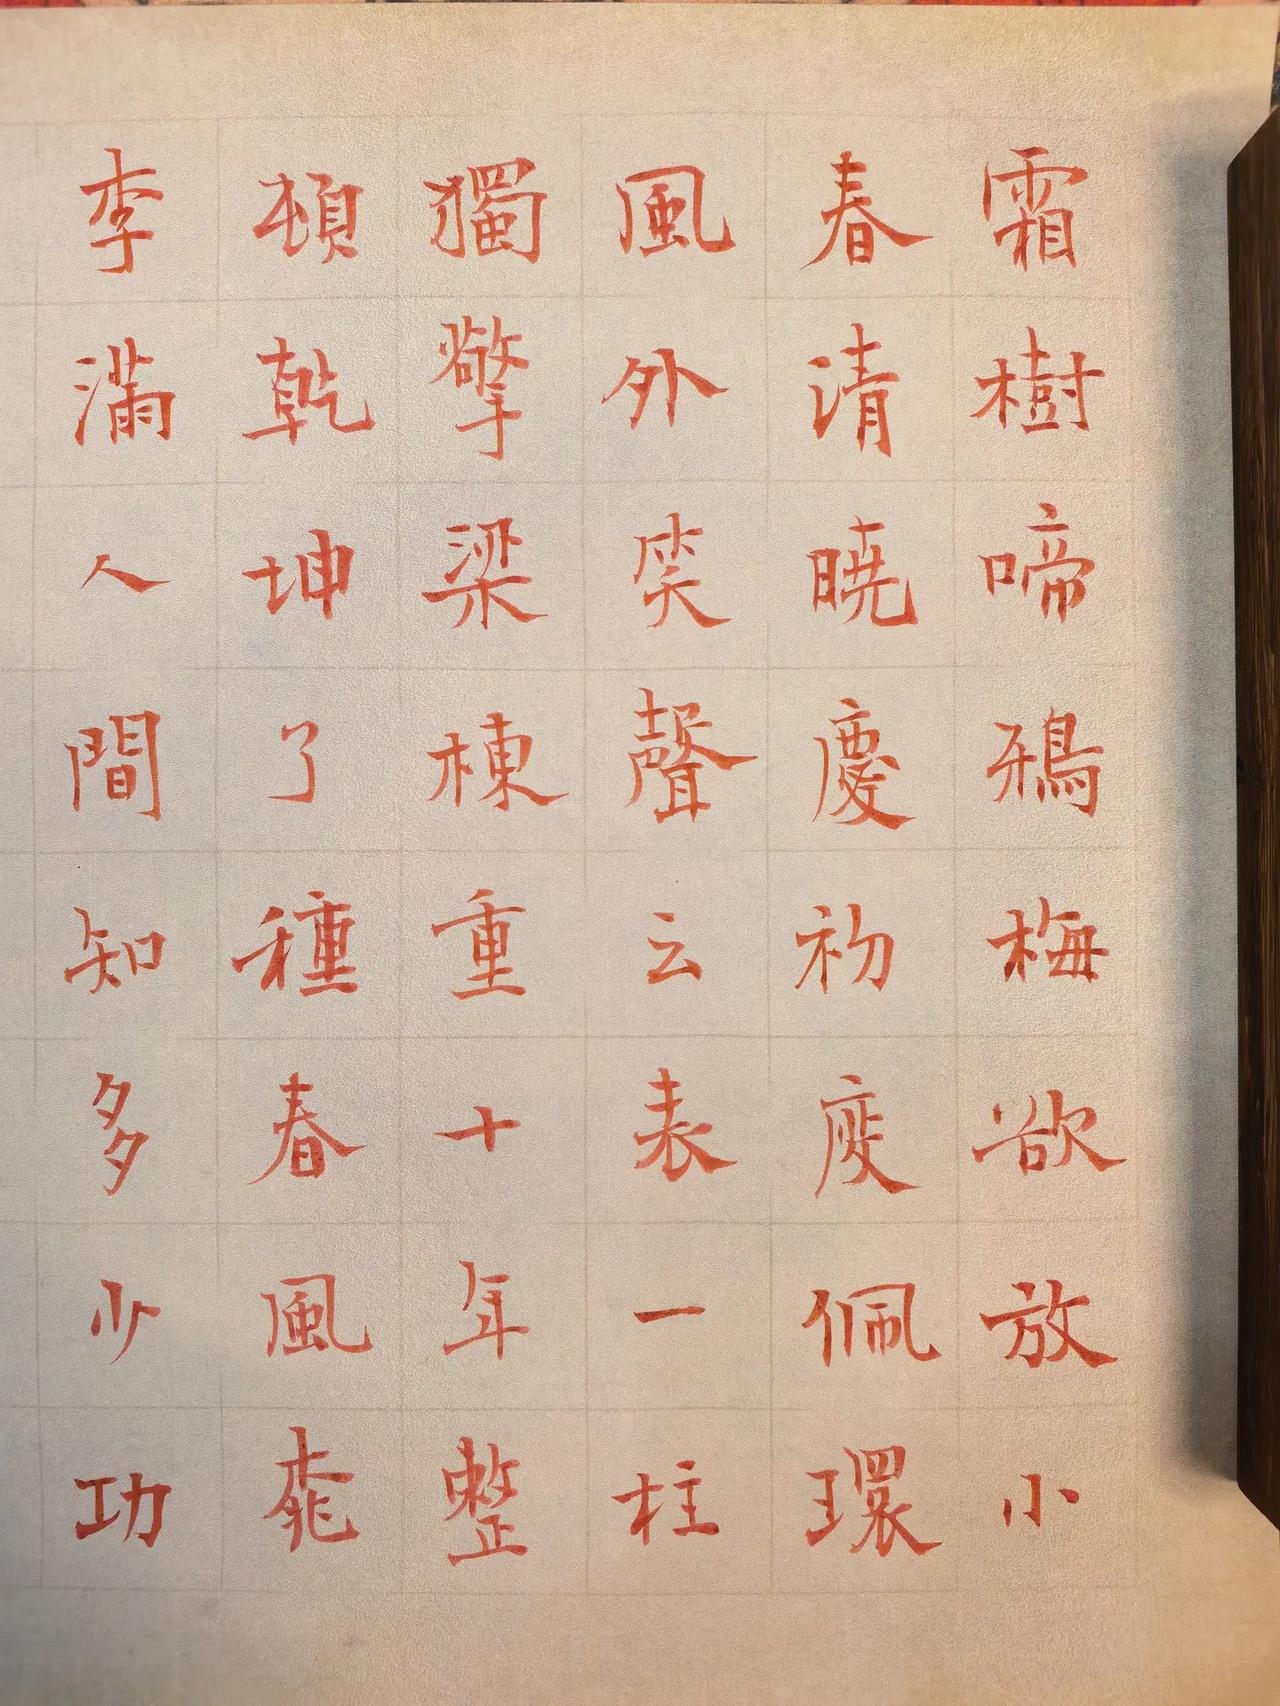 霜樹啼鴉梅欲放小
春清曉慶初度佩環
風外笑聲云表一柱
獨擎梁棟重十年整
頓乾坤了種春風桃
李滿人間知多少功